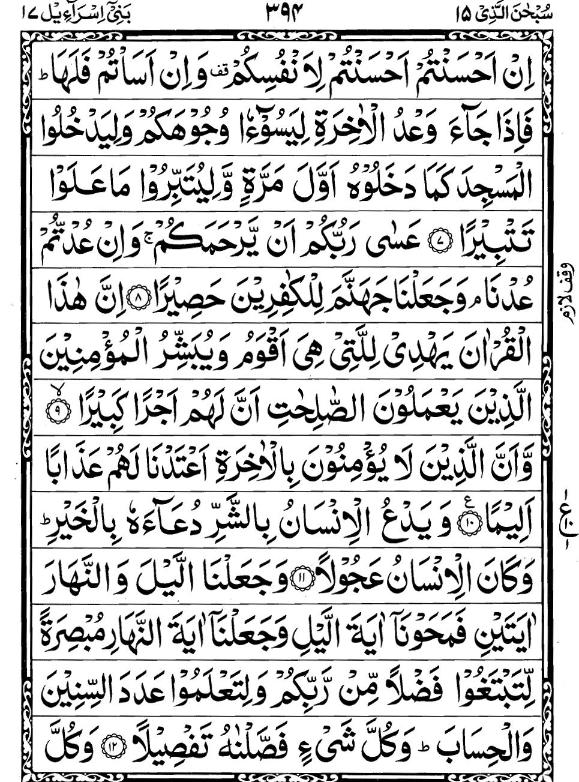 سُبْحٰنَ الَّذِیْۤ ۱۵ ۳۹۴ بَنِیْۤ اِسْرَآءِیْل ۱۷
اِنْ اَحْسَنْتُمْ اَحْسَنْتُمْ لِاَنْفُسِكُمْ ۫ وَاِنْ اَسَاْتُمْ فَلَهَا ؕ
فَاِذَا جَآءَ وَعْدُ الْاٰخِرَةِ لِیَسُوْٓءٗا وُجُوْهَكُمْ وَلِیَدْخُلُوا
الْمَسْجِدَ كَمَا دَخَلُوْهُ اَوَّلَ مَرَّةٍ وَّلِیُتَبِّرُوْا مَا عَلَوْا
تَتْبِیْرًا ﴿۷﴾ عَسٰی رَبُّكُمْ اَنْ یَّرْحَمَكُمْ ۚ وَاِنْ عُدْتُّمْ
عُدْنَا ۘ وَجَعَلْنَا جَهَنَّمَ لِلْكٰفِرِیْنَ حَصِیْرًا ﴿۸﴾ اِنَّ هٰذَا
وقف لازم
الْقُرْاٰنَ یَهْدِیْ لِلَّتِیْ هِیَ اَقْوَمُ وَیُبَشِّرُ الْمُؤْمِنِیْنَ
الَّذِیْنَ یَعْمَلُوْنَ الصّٰلِحٰتِ اَنَّ لَهُمْ اَجْرًا كَبِیْرًا ﴿ۙ۹﴾
وَّاَنَّ الَّذِیْنَ لَا یُؤْمِنُوْنَ بِالْاٰخِرَةِ اَعْتَدْنَا لَهُمْ عَذَابًا
اَلِیْمًا ﴿۱۰﴾ وَیَدْعُ الْاِنْسَانُ بِالشَّرِّ دُعَآءَهٗ بِالْخَیْرِ ؕ
وَكَانَ الْاِنْسَانُ عَجُوْلًا ﴿۱۱﴾ وَجَعَلْنَا الَّیْلَ وَالنَّهَارَ
اٰیَتَیْنِ فَمَحَوْنَاۤ اٰیَةَ الَّیْلِ وَجَعَلْنَاۤ اٰیَةَ النَّهَارِ مُبْصِرَةً
لِّتَبْتَغُوْا فَضْلًا مِّنْ رَّبِّكُمْ وَلِتَعْلَمُوْا عَدَدَ السِّنِیْنَ
وَالْحِسَابَ ؕ وَكُلَّ شَیْءٍ فَصَّلْنٰهُ تَفْصِیْلًا ﴿۱۲﴾ وَكُلَّ